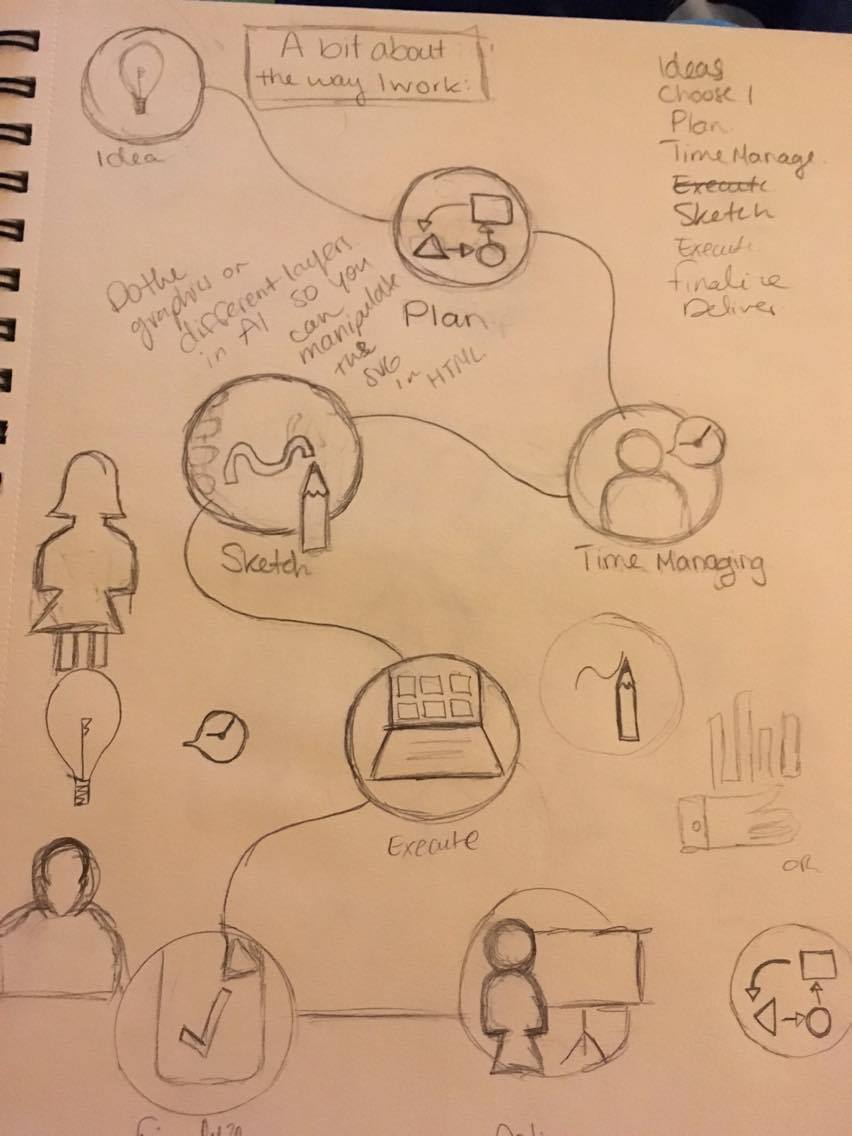 A bit about
the way I work:
Idea
Ideas
Choose 1
Plan
Time Manage.
Execute
Sketch
Execute
finalize
Deliver
Do the
graphics on
different layers
in AI so you
can
manipulate
the
SVG
in HTML
Plan
Sketch
Time Managing
Execute
OR